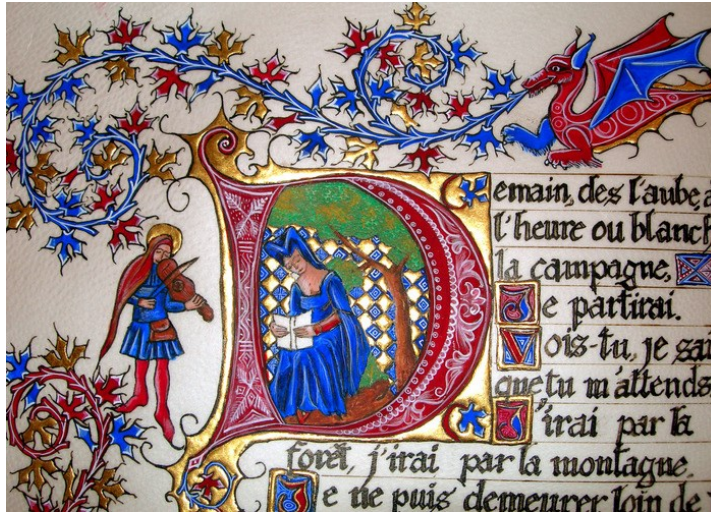 Demain, des l'aube, à
l'heure ou blanch
la campagne,
Je partirai.
Vois-tu, je sai
que tu m'attends
J'irai par la
forêt, j'irai par la montagne.
Je ne puis demeurer loin de